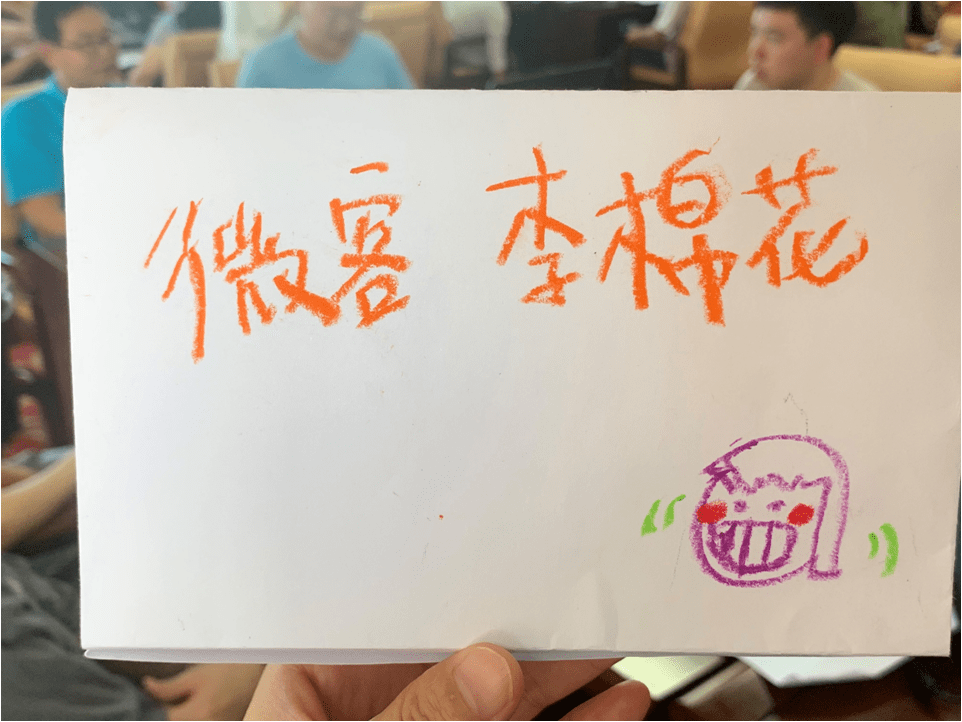 微客 李棉花